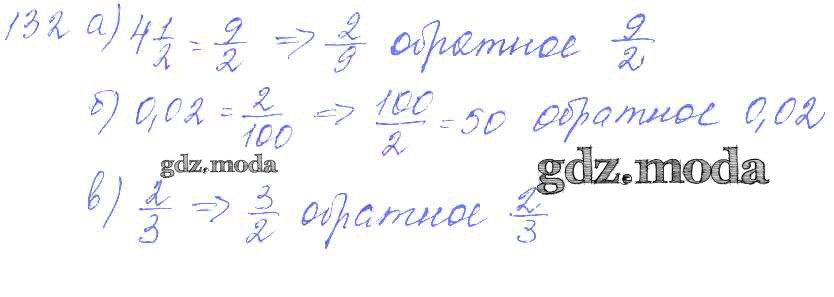 132 а) 4 1/2 = 9/2 => 2/9 обратное 9/2
б) 0,02 = 2/100 => 100/2 = 50 обратное 0,02
gdz.moda
gdz.moda
в) 2/3 => 3/2 обратное 2/3